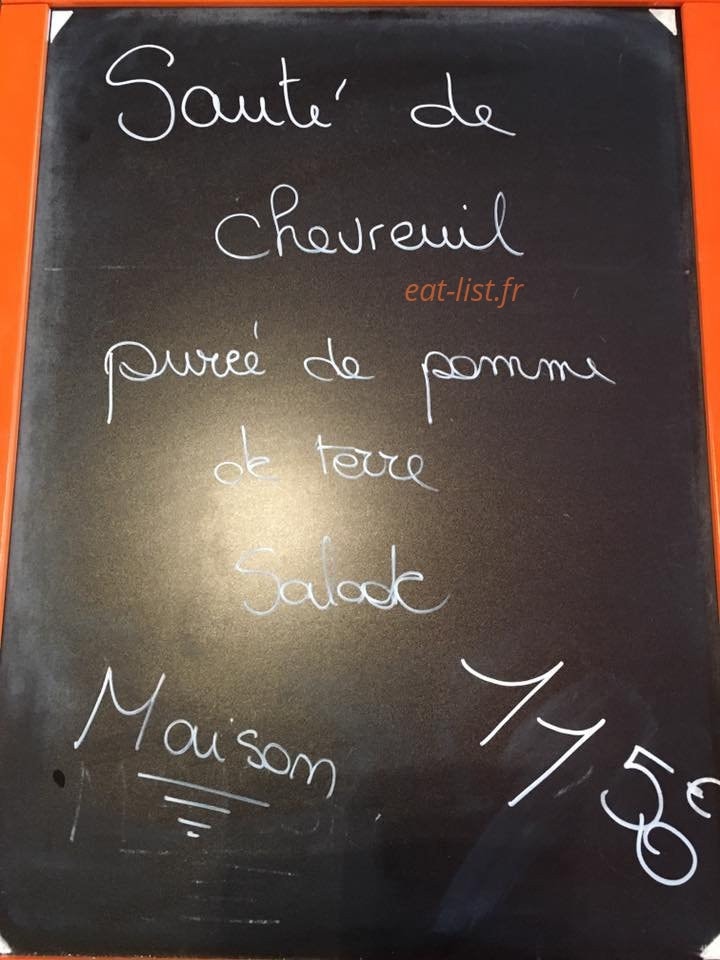 Sauté de
chevreuil
eat-list.fr
purée de pomme
de terre
Salade
Maison
11,50€